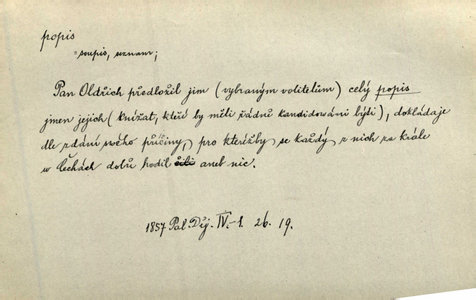 popis
= soupis, seznam;
Pan Oldřich předložil jim (vybraným volitelům) celý popis
jmen jejich (knížat, kteří by měli řádně kandidováni býti), dokládaje
dle zdání svého příčiny, pro kteréžby se každý z nich za krále
w Čechách dobře hodil čili aneb nic.
1857 Pal. Děj. IV.-1. 26. 19.